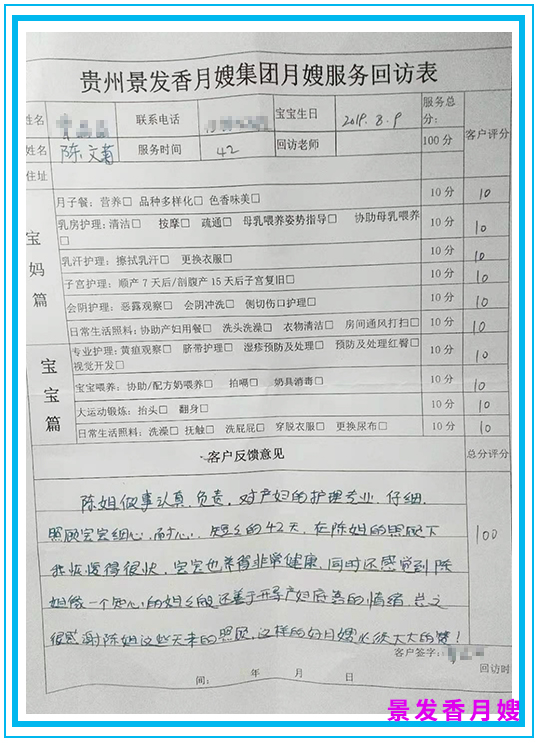 贵州景发香月嫂集团月嫂服务回访表
姓名 联系电话 宝宝生日 2019.8.9 服务总分: 客户评分
姓名 陈文菊 服务时间 42 回访老师 100分
住址
宝妈篇
月子餐:营养□ 品种多样化□ 色香味美□ 10分 10
乳房护理:清洁□ 按摩□ 疏通□ 母乳喂养姿势指导□ 协助母乳喂养□ 10分 10
乳汗护理:擦拭乳汗□ 更换衣服□ 10分 10
子宫护理:顺产7天后/剖腹产15天后子宫复旧□ 10分 10
会阴护理:恶露观察□ 会阴冲洗□ 侧切伤口护理□ 10分 10
日常生活照料:协助产妇用餐□ 洗头洗澡□ 衣物清洁□ 房间通风打扫□ 10分 10
宝宝篇
专业护理:黄疸观察□ 脐带护理□ 湿疹预防及处理□ 预防及处理红臀□ 视觉开发□ 10分 10
宝宝喂养:协助/配方奶喂养□ 拍嗝□ 奶具消毒□ 10分 10
大运动锻炼:抬头□ 翻身□ 10分 10
日常生活照料:洗澡□ 抚触□ 洗屁屁□ 穿脱衣服□ 更换尿布□ 10分 10
客户反馈意见 总分评分
陈姐做事认真,负责,对产妇的护理专业,仔细.
照顾宝宝细心,耐心,短短的42天,在陈姐的照顾下
我恢复得很快,宝宝也养得非常健康,同时还感觉到陈
姐像一个知心的姐姐还善于开导产妇的情绪,总之
很感谢陈姐这些天来的照顾,这样的好月嫂必须大大的赞!
100
客户签字:
回访时间: 年 月 日
景发香月嫂